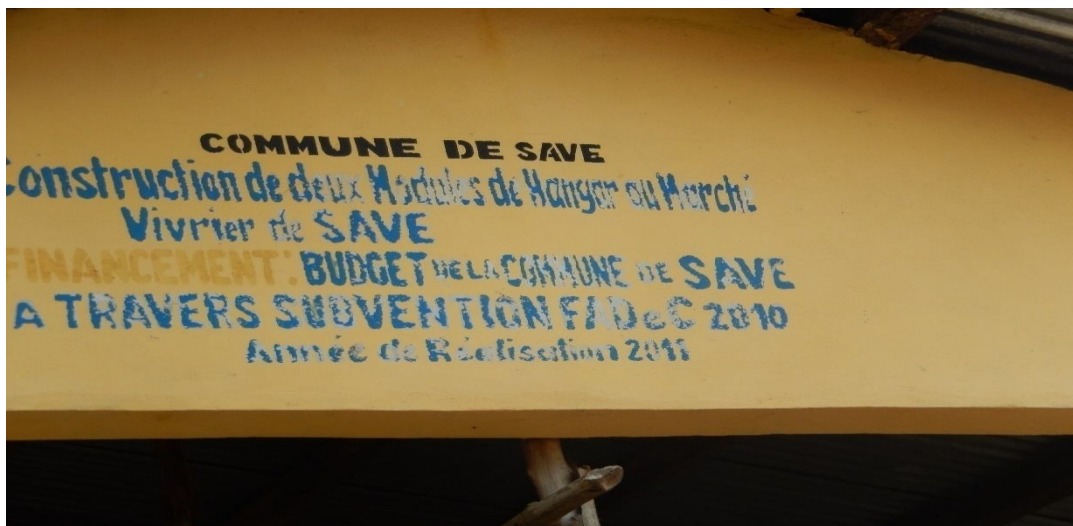 COMMUNE DE SAVE
Construction de deux Modules de Hangar au Marché
Vivrier de SAVE
FINANCEMENT: BUDGET DE LA COMMUNE DE SAVE
A TRAVERS SUBVENTION FADeC 2010
Année de Réalisation 2011